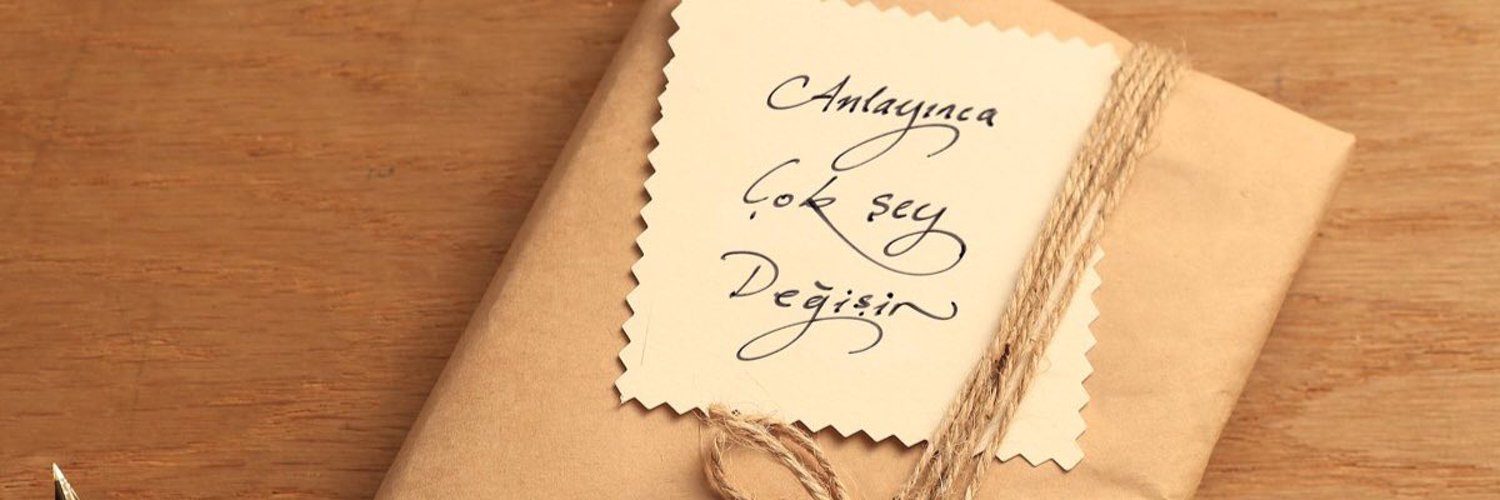 Anlayınca
Çok şey
Değişir